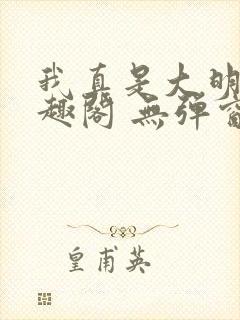 我真是大明
趣閣 無彈窗
皇甫英